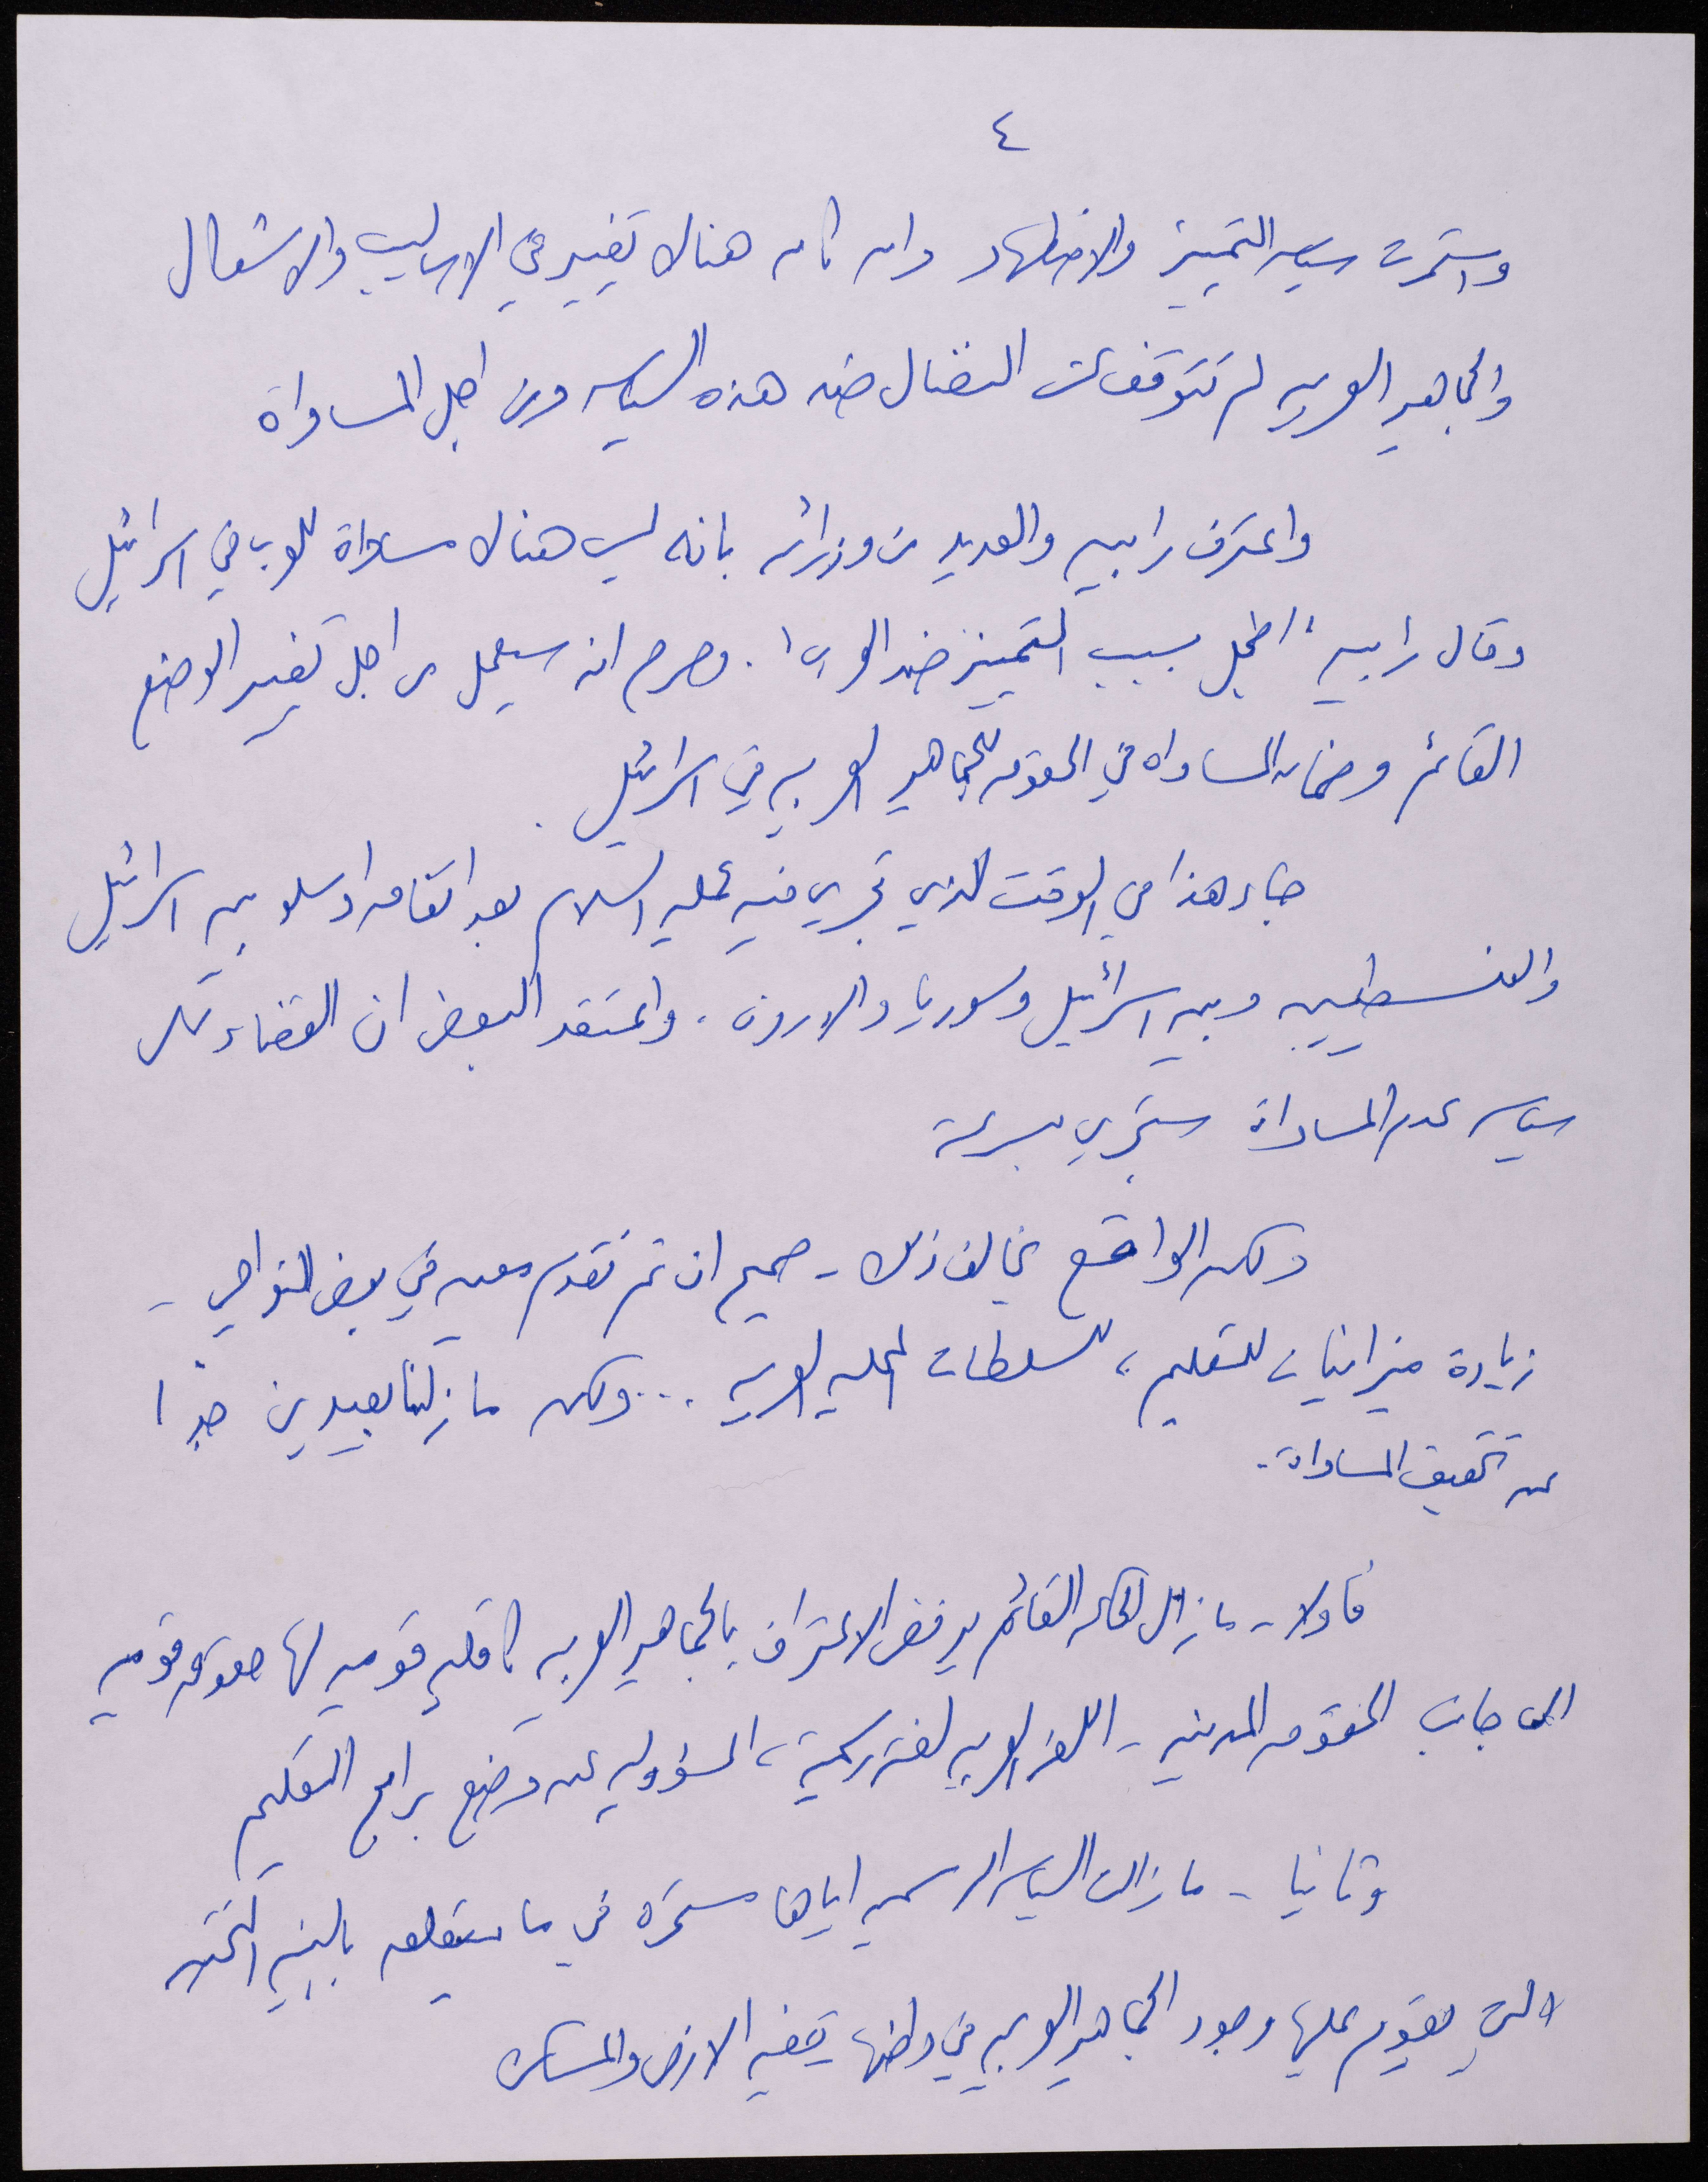 ٤
واستمرت سياسه التمييز والاضطهاد وان كان هنالك تغيير في الاساليب والاشكال
والجماهير العربيه لم تتوقف عن النضال ضد هذه السياسه ومن اجل المساواة
واعترف رابين والعديد من وزرائه بانه ليس هنالك مساواة للعرب في اسرائيل
وقال رابين "اخجل بسبب التمييز ضد العرب". وصرح انه سيعمل من اجل تغيير الوضع
القائم وضمان المساواه في الحقوق للجماهير العربيه في اسرائيل.
جاء هذا في الوقت الذي تجري فيه عمليه السلام بعد اتفاق اوسلو بين اسرائيل
والفلسطينيين وبين اسرائيل وسوريا والاردن. واعتقد البعض ان القضاء على
سياسه عدم المساواة ستجري بسرعة
ولكن الواقع يخالف ذلك - صحيح ان تم تقدم معين في بعض النواحي -
زيادة ميزانيات للتعليم، للسلطات المحليه العربيه ... ولكن ما زلنا بعيدين جدا
عن تحقيق المساواة.
فاولا - ما زال الحكم القائم يرفض الاعتراف بالجماهير العربيه كاقليه قوميه لها حقوق قوميه
الى جانب الحقوق المدنيه - اللغه العربيه لغة رسمية، المسؤوليه عن وضع برامج التعليم
وثانيا - ما زالت السياسه الرسميه اياها مستمره في ما يتعلق بالبنيه التحتيه
التي يقوم عليها وجود الجماهير العربيه في وطنها قضية الارض والمسكن